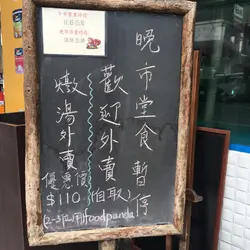 晚市堂食暫停
歡迎外賣(自取)
燉湯外賣
優惠價
$110
(2-3位用)
foodpanda